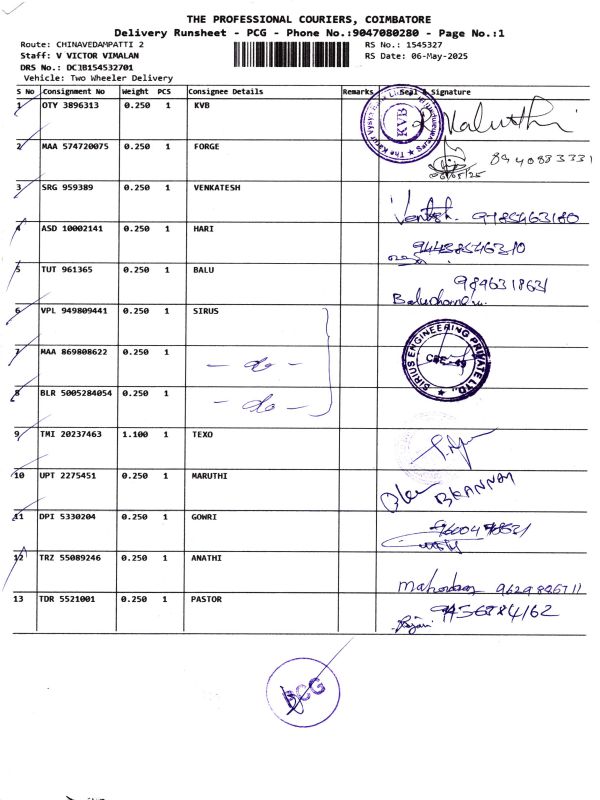 THE PROFESSIONAL COURIERS, COIMBATORE
Delivery Runsheet - PCG - Phone No.:9047080280 - Page No.:1
Route: CHINAVEDAMPATTI 2
RS No.: 1545327
Staff: V VICTOR VIMALAN
RS Date: 06-May-2025
DRS No.: DCJB154532701
Vehicle: Two Wheeler Delivery
S No Consignment No Weight PCS Consignee Details Remarks Seal & Signature
1 OTY 3896313 0.250 1 KVB
KVB
2 MAA 574720075 0.250 1 FORGE
3 SRG 959389 0.250 1 VENKATESH
Ventesh. 9785463180
4 ASD 10002141 0.250 1 HARI
5 TUT 961365 0.250 1 BALU
9846318631
6 VPL 949809441 0.250 1 SIRUS
SIRIUS ENGINEERING PRIVATE LTD.,
CBE-49
7 MAA 869808622 0.250 1 - do -
8 BLR 5005284054 0.250 1 - do -
9 TMI 20237463 1.100 1 TEXO
10 UPT 2275451 0.250 1 MARUTHI
11 DPI 5330204 0.250 1 GOWRI
12 TRZ 55089246 0.250 1 ANATHI
13 TDR 5521001 0.250 1 PASTOR
PCG